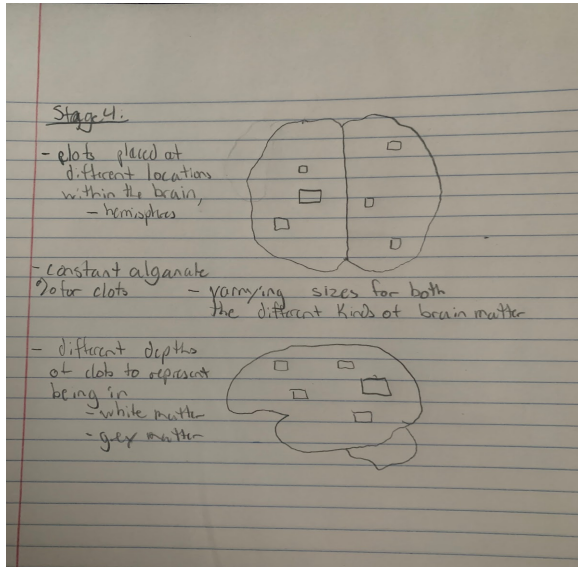 Stage 4.
- clots placed at
different locations
within the brain,
- hemispheres
- constant alganate
% for clots
- varrying sizes for both
the different kinds of brain matter
- different depths
of clots to represent
being in
- white matter
- grey matter